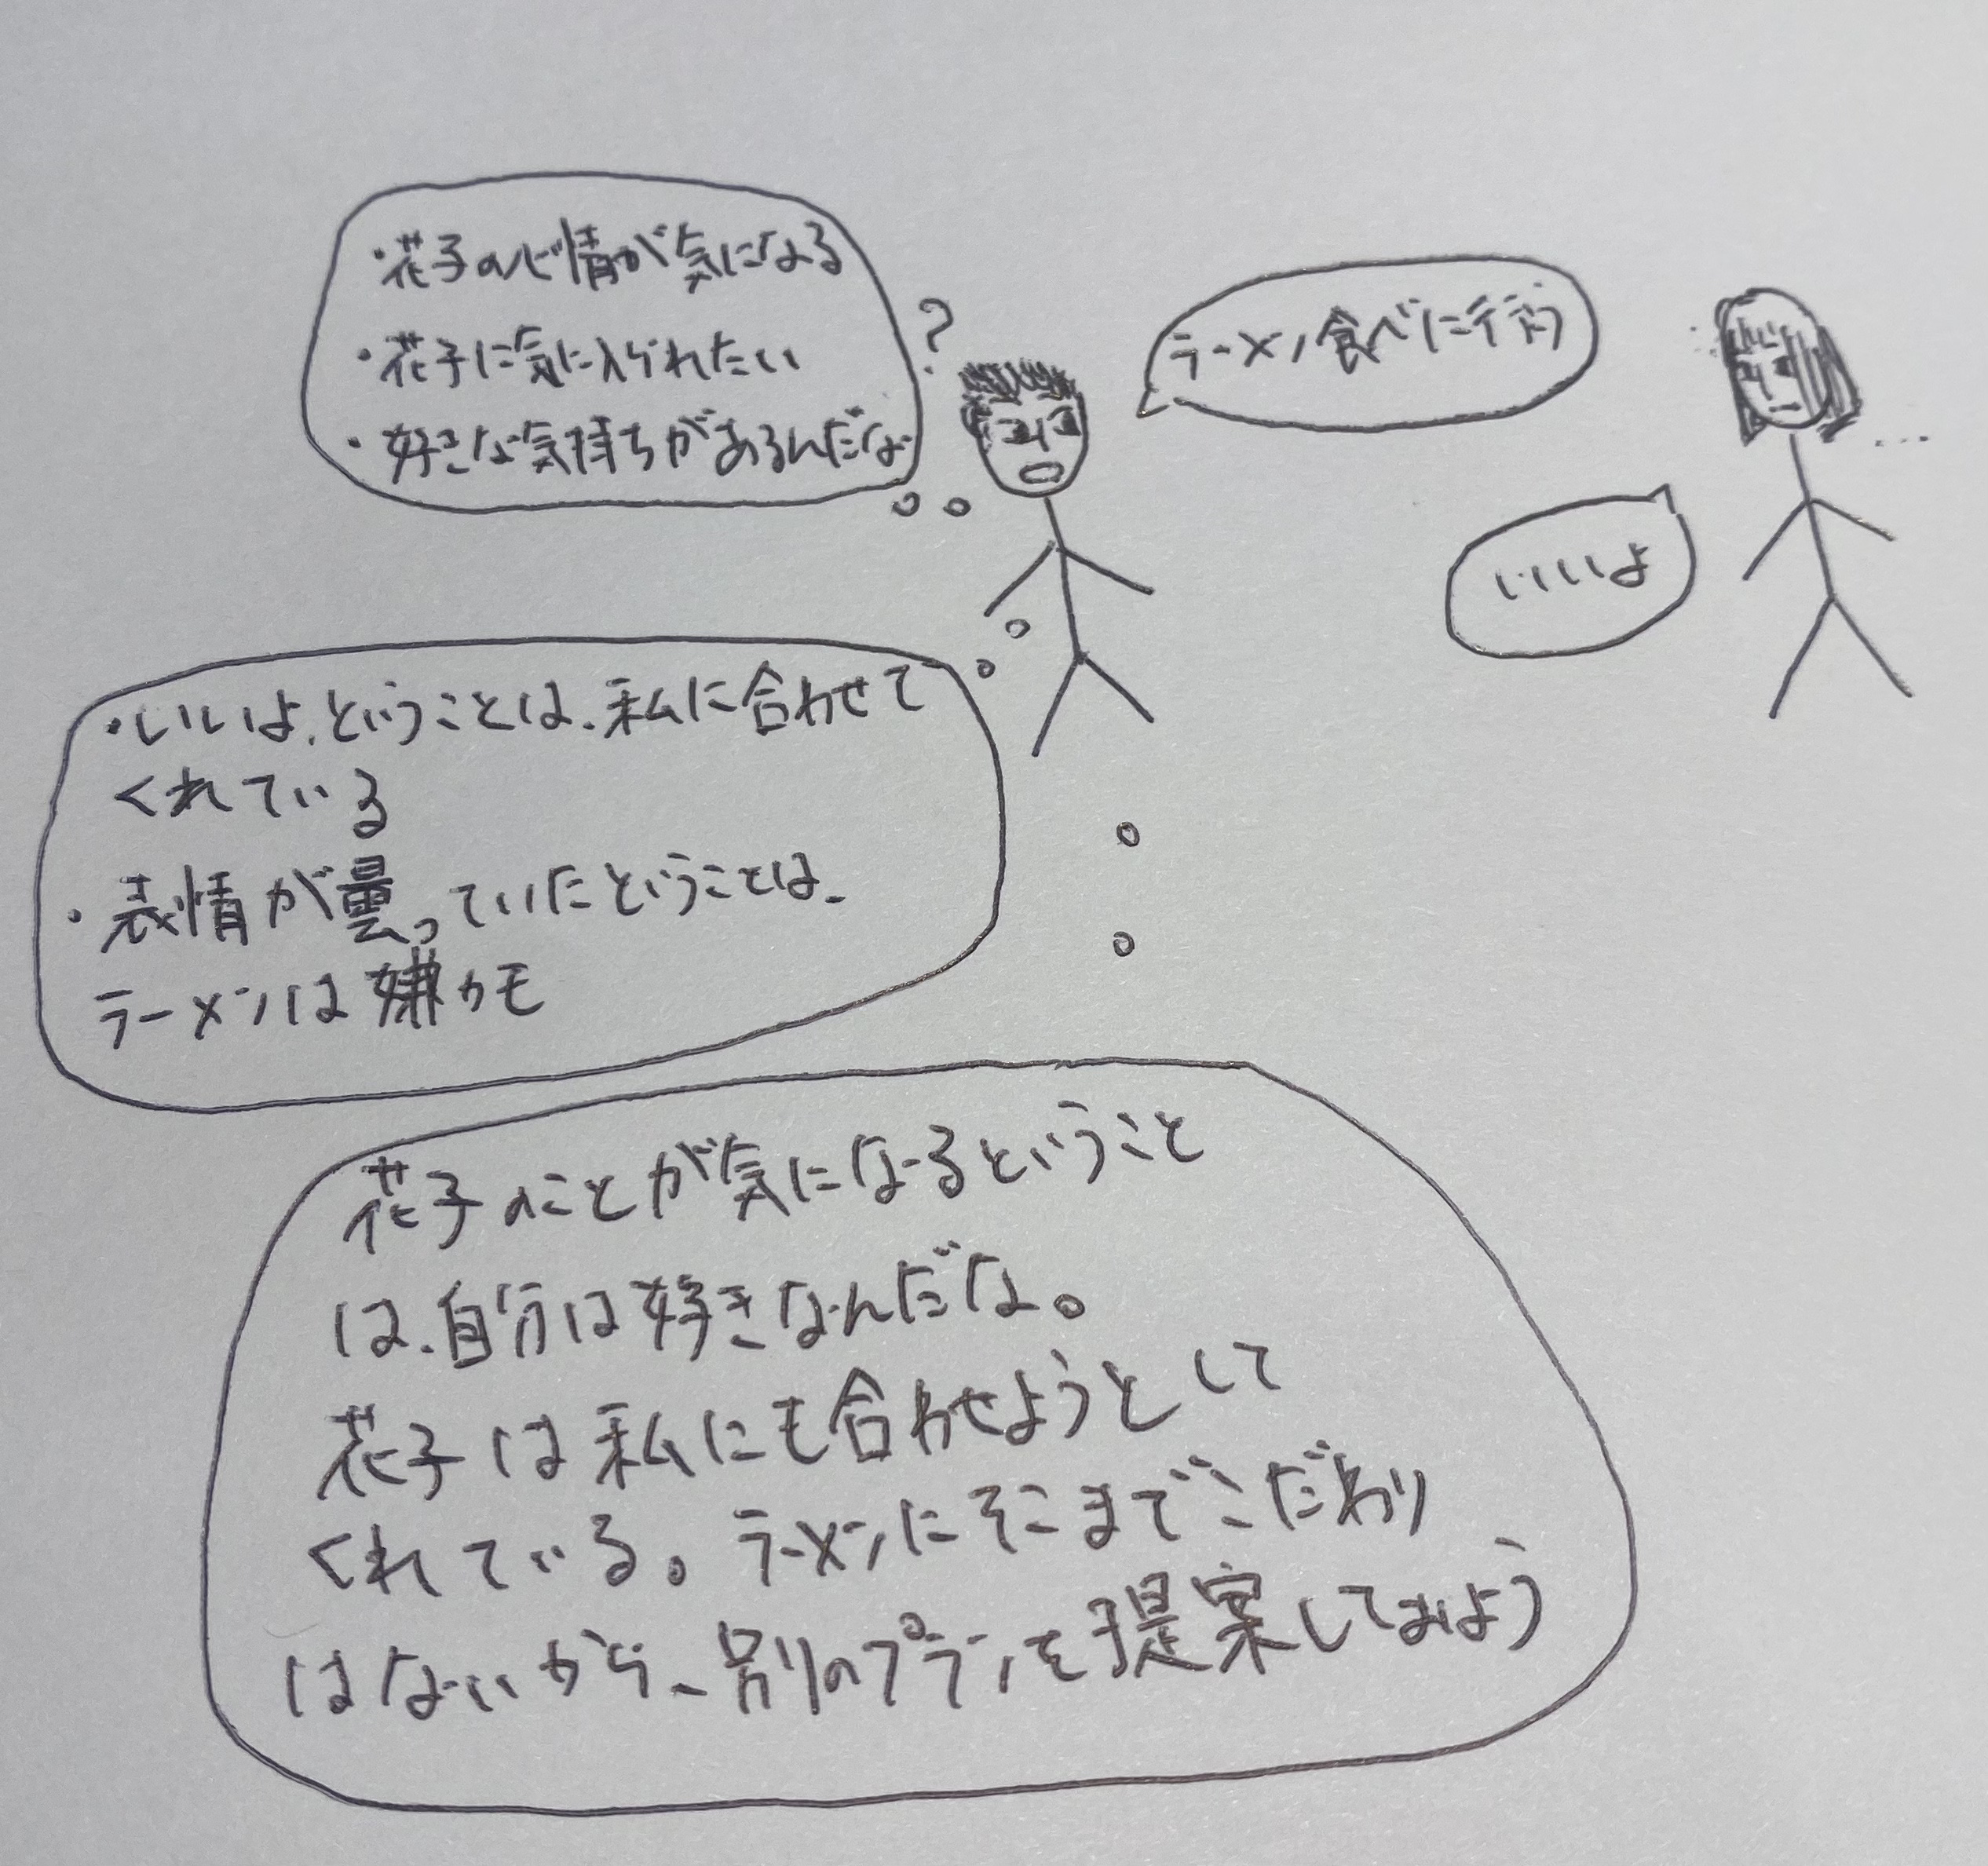 ・花子の心情が気になる
・花子に気に入られたい
・好きな気持ちがあるんだな
?
ラーメン食べに行こう
いいよ
・いいよ、ということは、私に合わせて
くれている
・表情が曇っていたということは、
ラーメンは嫌かも
花子のことが気になるということ
は、自分は好きなんだな。
花子は私にも合わせようとして
くれている。ラーメンにそこまでこだわり
はないから、別のプランを提案してみよう